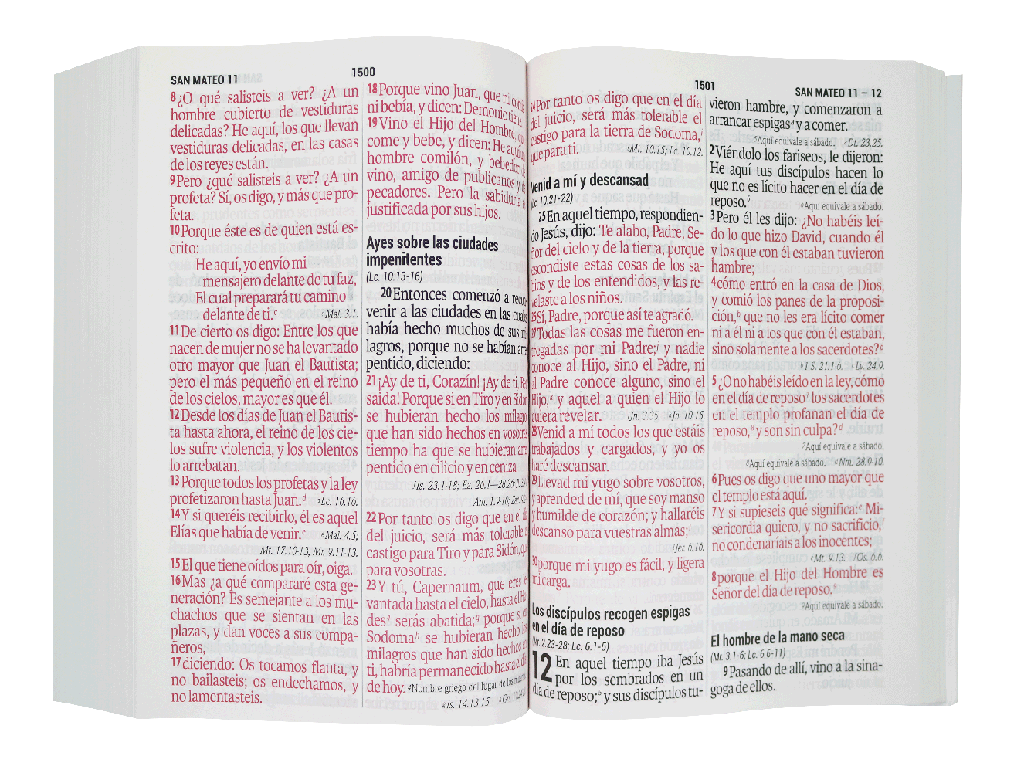 SAN MATEO 11
1500
8¿O qué salisteis a ver? ¿A un
hombre cubierto de vestiduras
delicadas? He aquí, los que llevan
vestiduras delicadas, en las casas
de los reyes están.
9Pero ¿qué salisteis a ver? ¿A un
profeta? Sí, os digo, y más que pro-
feta.
10Porque éste es de quien está es-
crito:
He aquí, yo envío mi
mensajero delante de tu faz,
El cual preparará tu camino
delante de ti.c cMal. 3.1.
11De cierto os digo: Entre los que
nacen de mujer no se ha levantado
otro mayor que Juan el Bautista;
pero el más pequeño en el reino
de los cielos, mayor es que él.
12Desde los días de Juan el Bautis-
ta hasta ahora, el reino de los cie-
los sufre violencia, y los violentos
lo arrebatan.
13Porque todos los profetas y la ley
profetizaron hasta Juan.d dLc. 16.16.
14Y si queréis recibirlo, él es aquel
Elías que había de venir.e eMal. 4.5;
Mt. 17.10-13; Mr. 9.11-13.
15El que tiene oídos para oír, oiga.
16Mas ¿a qué compararé esta ge-
neración? Es semejante a los mu-
chachos que se sientan en las
plazas, y dan voces a sus compa-
ñeros,
17diciendo: Os tocamos flauta, y
no bailasteis; os endechamos, y
no lamentasteis.
18Porque vino Juan, que ni
ni bebía, y dicen: Demonio
19Vino el Hijo del Hombre,
come y bebe, y dicen: He aquí un
hombre comilón, y bebedor de
vino, amigo de publicanos y de
pecadores. Pero la sabiduría
justificada por sus hijos.
Ayes sobre las ciudades
impenitentes
(Lc. 10.13-16)
20Entonces comenzó a
venir a las ciudades en las
había hecho muchos de sus mi-
lagros, porque no se habían
pentido, diciendo:
21¡Ay de ti, Corazín! ¡Ay de ti,
saida! Porque si en Tiro y en Sidón
se hubieran hecho los milagros
que han sido hechos en vosotras,
tiempo ha que se hubieran
pentido en cilicio y en ceniza.
22Por tanto os digo que en el
del juicio, será más tolerable
castigo para Tiro y para Sidón,
para vosotras.
23Y tú, Capernaum, que eres
vantada hasta el cielo, hasta el
des serás abatida; porque si en
Sodoma se hubieran hecho los
milagros que han sido hechos
ti, habría permanecido hasta
de hoy.
Is. 14.13-15
1501
SAN MATEO 11 – 12
24Por tanto os digo que en el día
del juicio, será más tolerable el
castigo para la tierra de Sodoma,
que para ti. Mt. 10.15; Lc. 10.12.
Venid a mí y descansad
(Lc. 10.21-22)
25En aquel tiempo, respondien-
do Jesús, dijo: Te alabo, Padre, Se-
ñor del cielo y de la tierra, porque
escondiste estas cosas de los sa-
bios y de los entendidos, y las re-
velaste a los niños.
26Sí, Padre, porque así te agradó.
27Todas las cosas me fueron en-
tregadas por mi Padre; y nadie
conoce al Hijo, sino el Padre, ni
al Padre conoce alguno, sino el
Hijo, y aquel a quien el Hijo lo
quiera revelar. Jn. 3.35. Jn. 10.15.
28Venid a mí todos los que estáis
trabajados y cargados, y yo os
haré descansar.
29Llevad mi yugo sobre vosotros,
y aprended de mí, que soy manso
y humilde de corazón; y hallaréis
descanso para vuestras almas;
Jer. 6.16.
30porque mi yugo es fácil, y ligera
mi carga.
Los discípulos recogen espigas
en el día de reposo
(Mr. 2.23-28; Lc. 6.1-5)
12 En aquel tiempo iba Jesús
por los sembrados en un
día de reposo; y sus discípulos tu-
vieron hambre, y comenzaron a
arrancar espigas y a comer.
Aquí equivale a sábado. Dt. 23.25.
2Viéndolo los fariseos, le dijeron:
He aquí tus discípulos hacen lo
que no es lícito hacer en el día de
reposo. Aquí equivale a sábado.
3Pero él les dijo: ¿No habéis leí-
do lo que hizo David, cuando él
y los que con él estaban tuvieron
hambre;
4cómo entró en la casa de Dios,
y comió los panes de la proposi-
ción,b que no les era lícito comer
ni a él ni a los que con él estaban,
sino solamente a los sacerdotes?c
b1 S. 21.1-6. cLv. 24.9.
5¿O no habéis leído en la ley, cómo
en el día de reposo los sacerdotes
en el templo profanan el día de
reposo, y son sin culpa?d
Aquí equivale a sábado.
Aquí equivale a sábado. dNm. 28.9-10.
6Pues os digo que uno mayor que
el templo está aquí.
7Y si supieseis qué significa:e Mi-
sericordia quiero, y no sacrificio,
no condenaríais a los inocentes;
eMt. 9.13. Os. 6.6.
8porque el Hijo del Hombre es
Señor del día de reposo.
Aquí equivale a sábado.
El hombre de la mano seca
(Mr. 3.1-6; Lc. 6.6-11)
9Pasando de allí, vino a la sina-
goga de ellos.